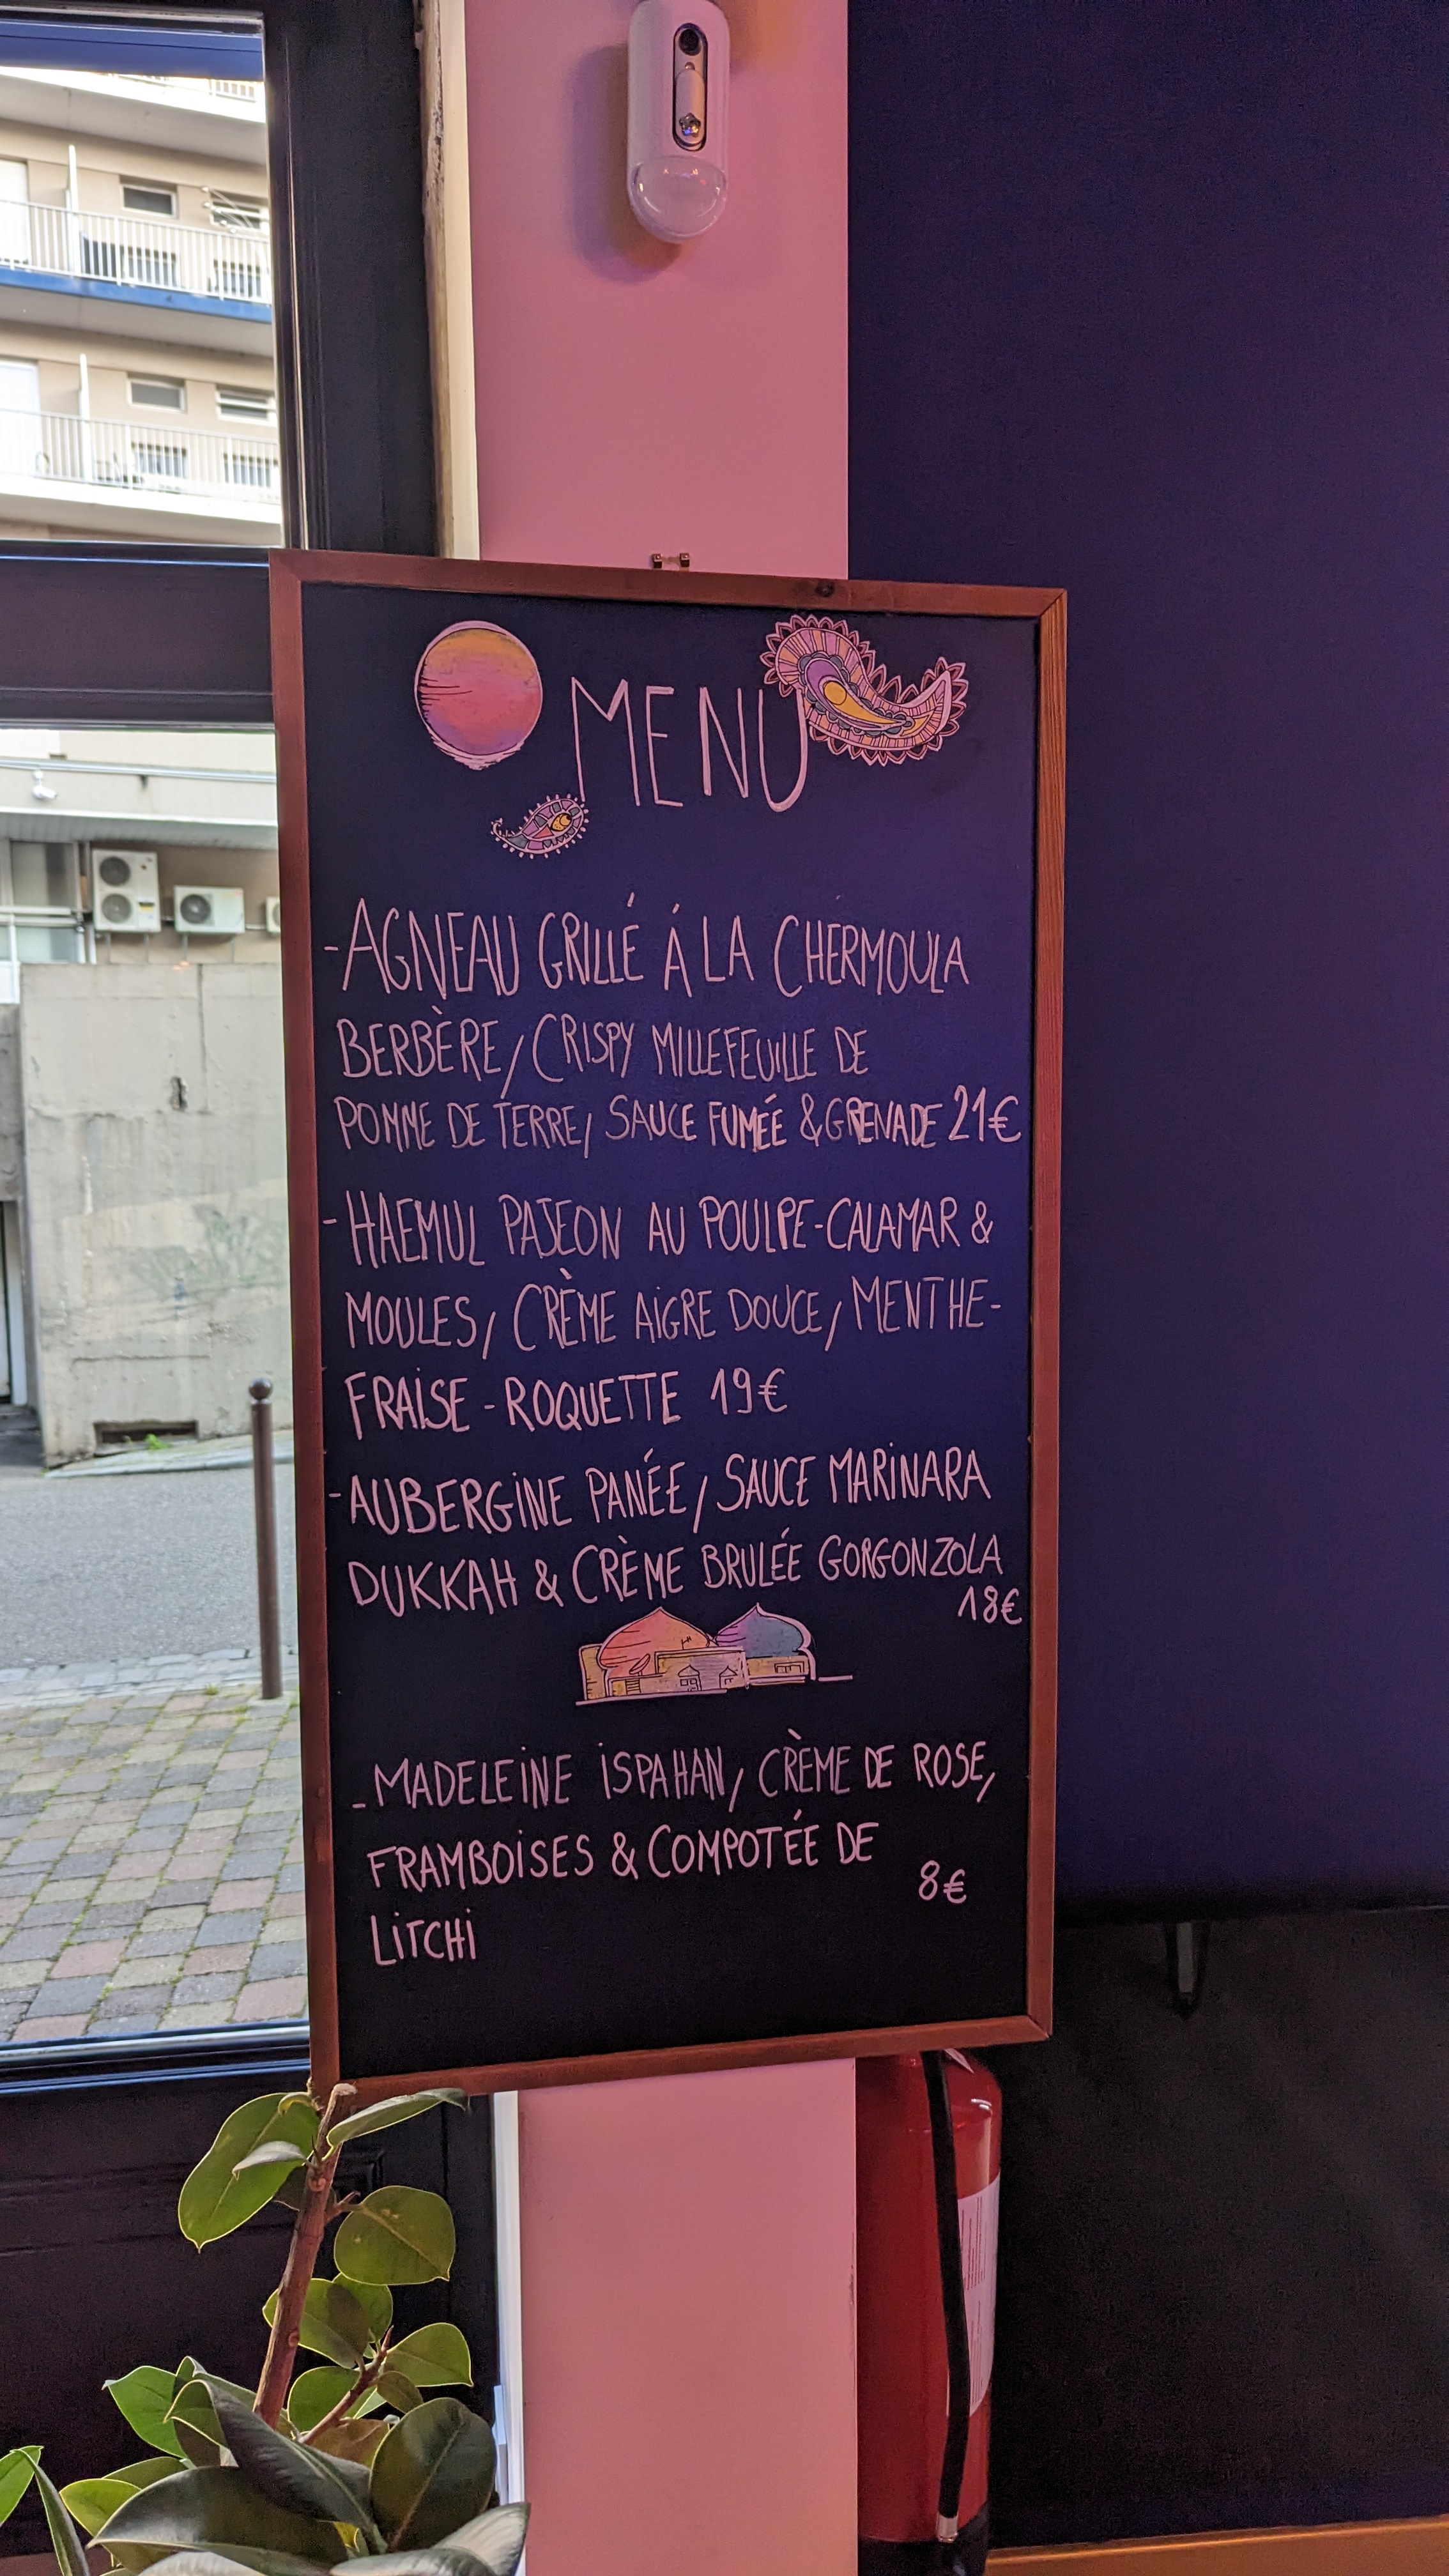 MENU
-AGNEAU GRILLÉ Á LA CHERMOULA
BERBÈRE, CRISPY MILLEFEUILLE DE
POMME DE TERRE, SAUCE FUMÉE & GRENADE 21€
-HAEMUL PAJEON AU POULPE-CALAMAR &
MOULES, CRÈME AIGRE DOUCE, MENTHE-
FRAISE-ROQUETTE 19€
-AUBERGINE PANÉE, SAUCE MARINARA
DUKKAH & CRÈME BRULÉE GORGONZOLA
18€
-MADELEINE ISPAHAN, CRÈME DE ROSE,
FRAMBOISES & COMPOTÉE DE
8€
LITCHI